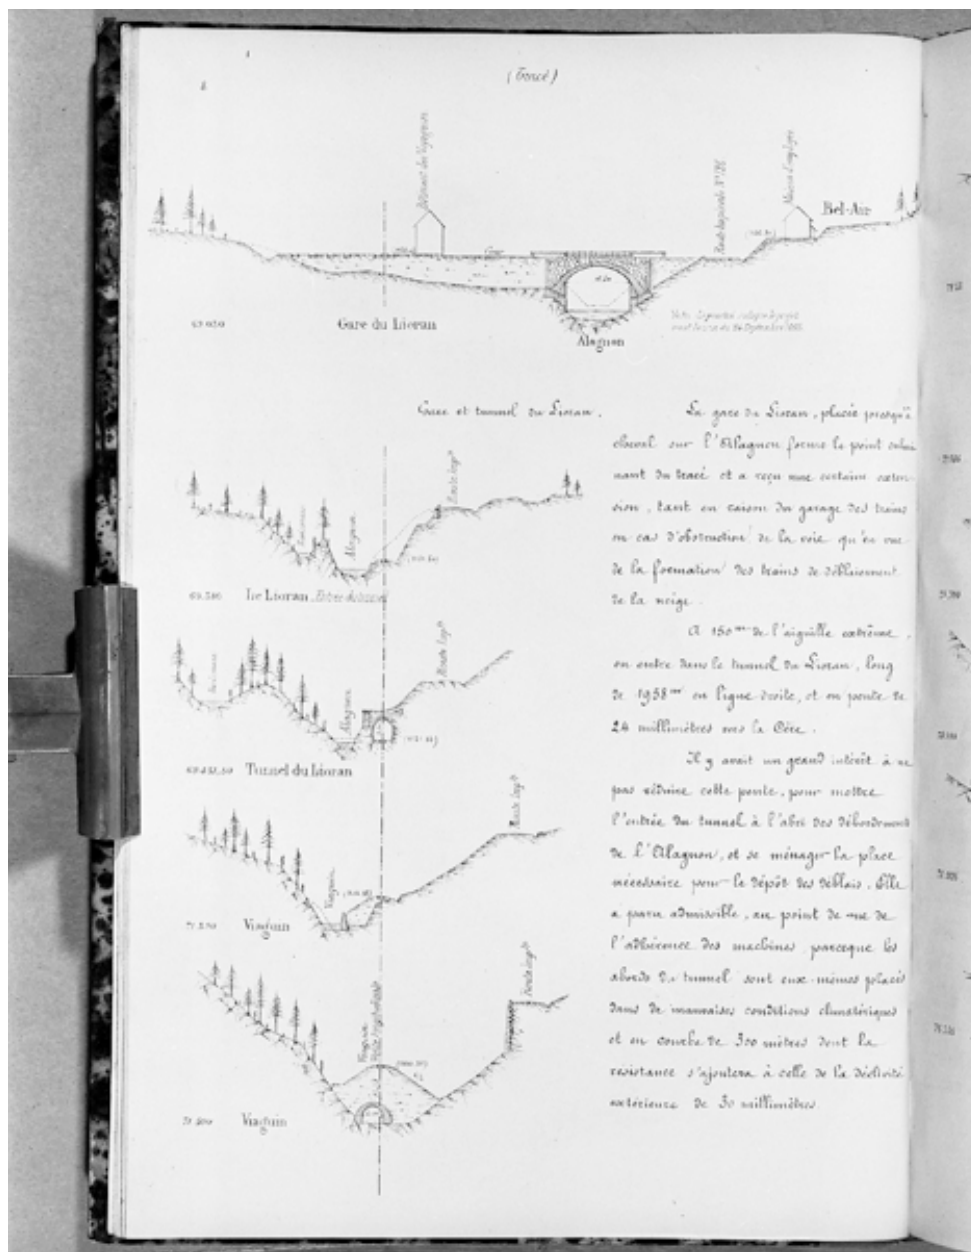 (Tracé)
Bâtiment des Voyageurs
Route Impériale Nº 126
Bel-Air
69.050
Gare du Lioran
Alagnon
Gare et tunnel du Lioran.
Route Imp.le
Alagnon
Le Lioran. Entrée du tunnel
Route Imp.le
Alagnon
Tunnel du Lioran
Route Imp.le
Viaguin
Viaguin
Route Imp.le
Viaguin
71.500
Viaguin
La gare du Lioran, placée presqu'à
cheval sur l'Alagnon forme le point culmi-
nant du tracé et a reçu une certaine exten-
sion, tant en raison du garage des trains
en cas d'obstruction de la voie qu'en vue
de la formation des trains de déblaiement
de la neige.
A 150m de l'aiguille extrême,
on entre dans le tunnel du Lioran, long
de 1958m en ligne droite, et en pente de
24 millimètres vers la Cère.
Il y avait un grand intérêt à ne
pas réduire cette pente, pour mettre
l'entrée du tunnel à l'abri des débordements
de l'Alagnon, et se ménager la place
nécessaire pour le dépôt des déblais. Elle
a paru admissible, au point de vue de
l'adhérence des machines, parceque les
abords du tunnel sont eux-mêmes placés
dans de mauvaises conditions climatériques
et en courbe de 300 mètres dont la
résistance s'ajoutera à celle de la déclivité
extérieure de 30 millimètres.